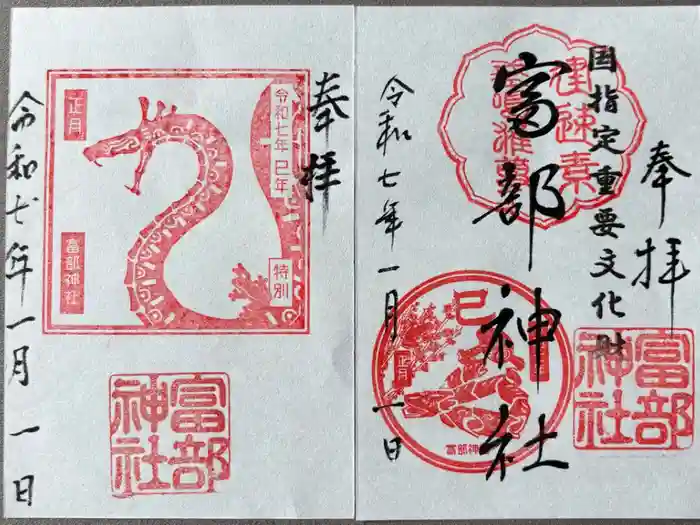 奉拝
令和七年 巳年
特別
正月
富部神社
富部
神社
令和七年一月一日
奉拝
国指定重要文化財
富部神社
建速素
巳
正月
富部神
富部
神社
令和七年一月一日